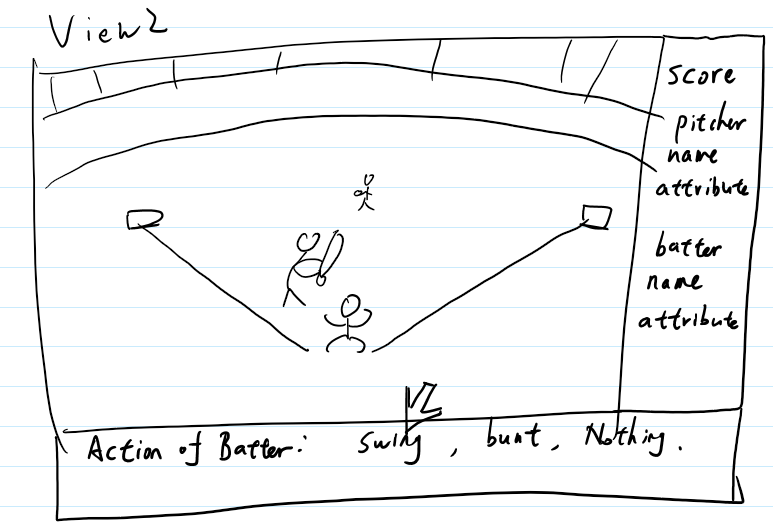 View2
Score
pitcher
name
attribute
batter
name
attribute
Action of Batter: swing, bunt, Nothing.